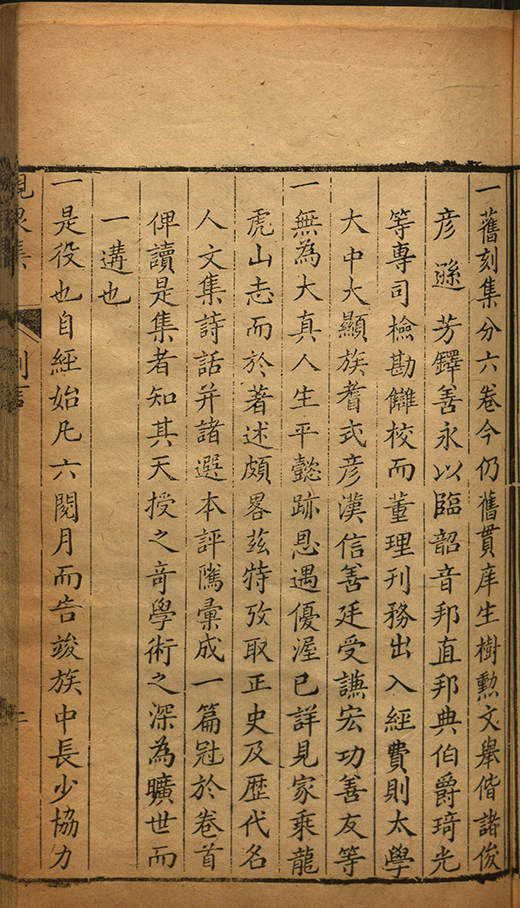 一舊刻集分六卷今仍舊貫庠生樹勲文舉偕諸俊
彦遜芳鐸善永以臨韶音邦直邦典伯爵琦光
等專司檢勘讎校而董理刊務出入經費則太學
大中大顯族耆式彦漢信善廷受謙宏功善友等
一無為大真人生平懿跡恩遇優渥已詳見家乘龍
虎山志而於著述頗畧兹特攷取正史及歴代名
人文集詩話并諸選本評隲彙成一篇冠於卷首
俾讀是集者知其天授之竒學術之深為曠世而
一遘也
一是役也自經始凡六閱月而告竣族中長少協力
峴泉集
例言
二